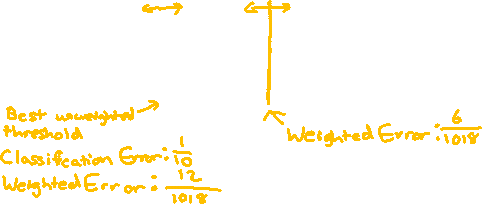 Best unweighted
threshold
Classification Error: 1/10
Weighted Error: 12/1018
Weighted Error: 6/1018